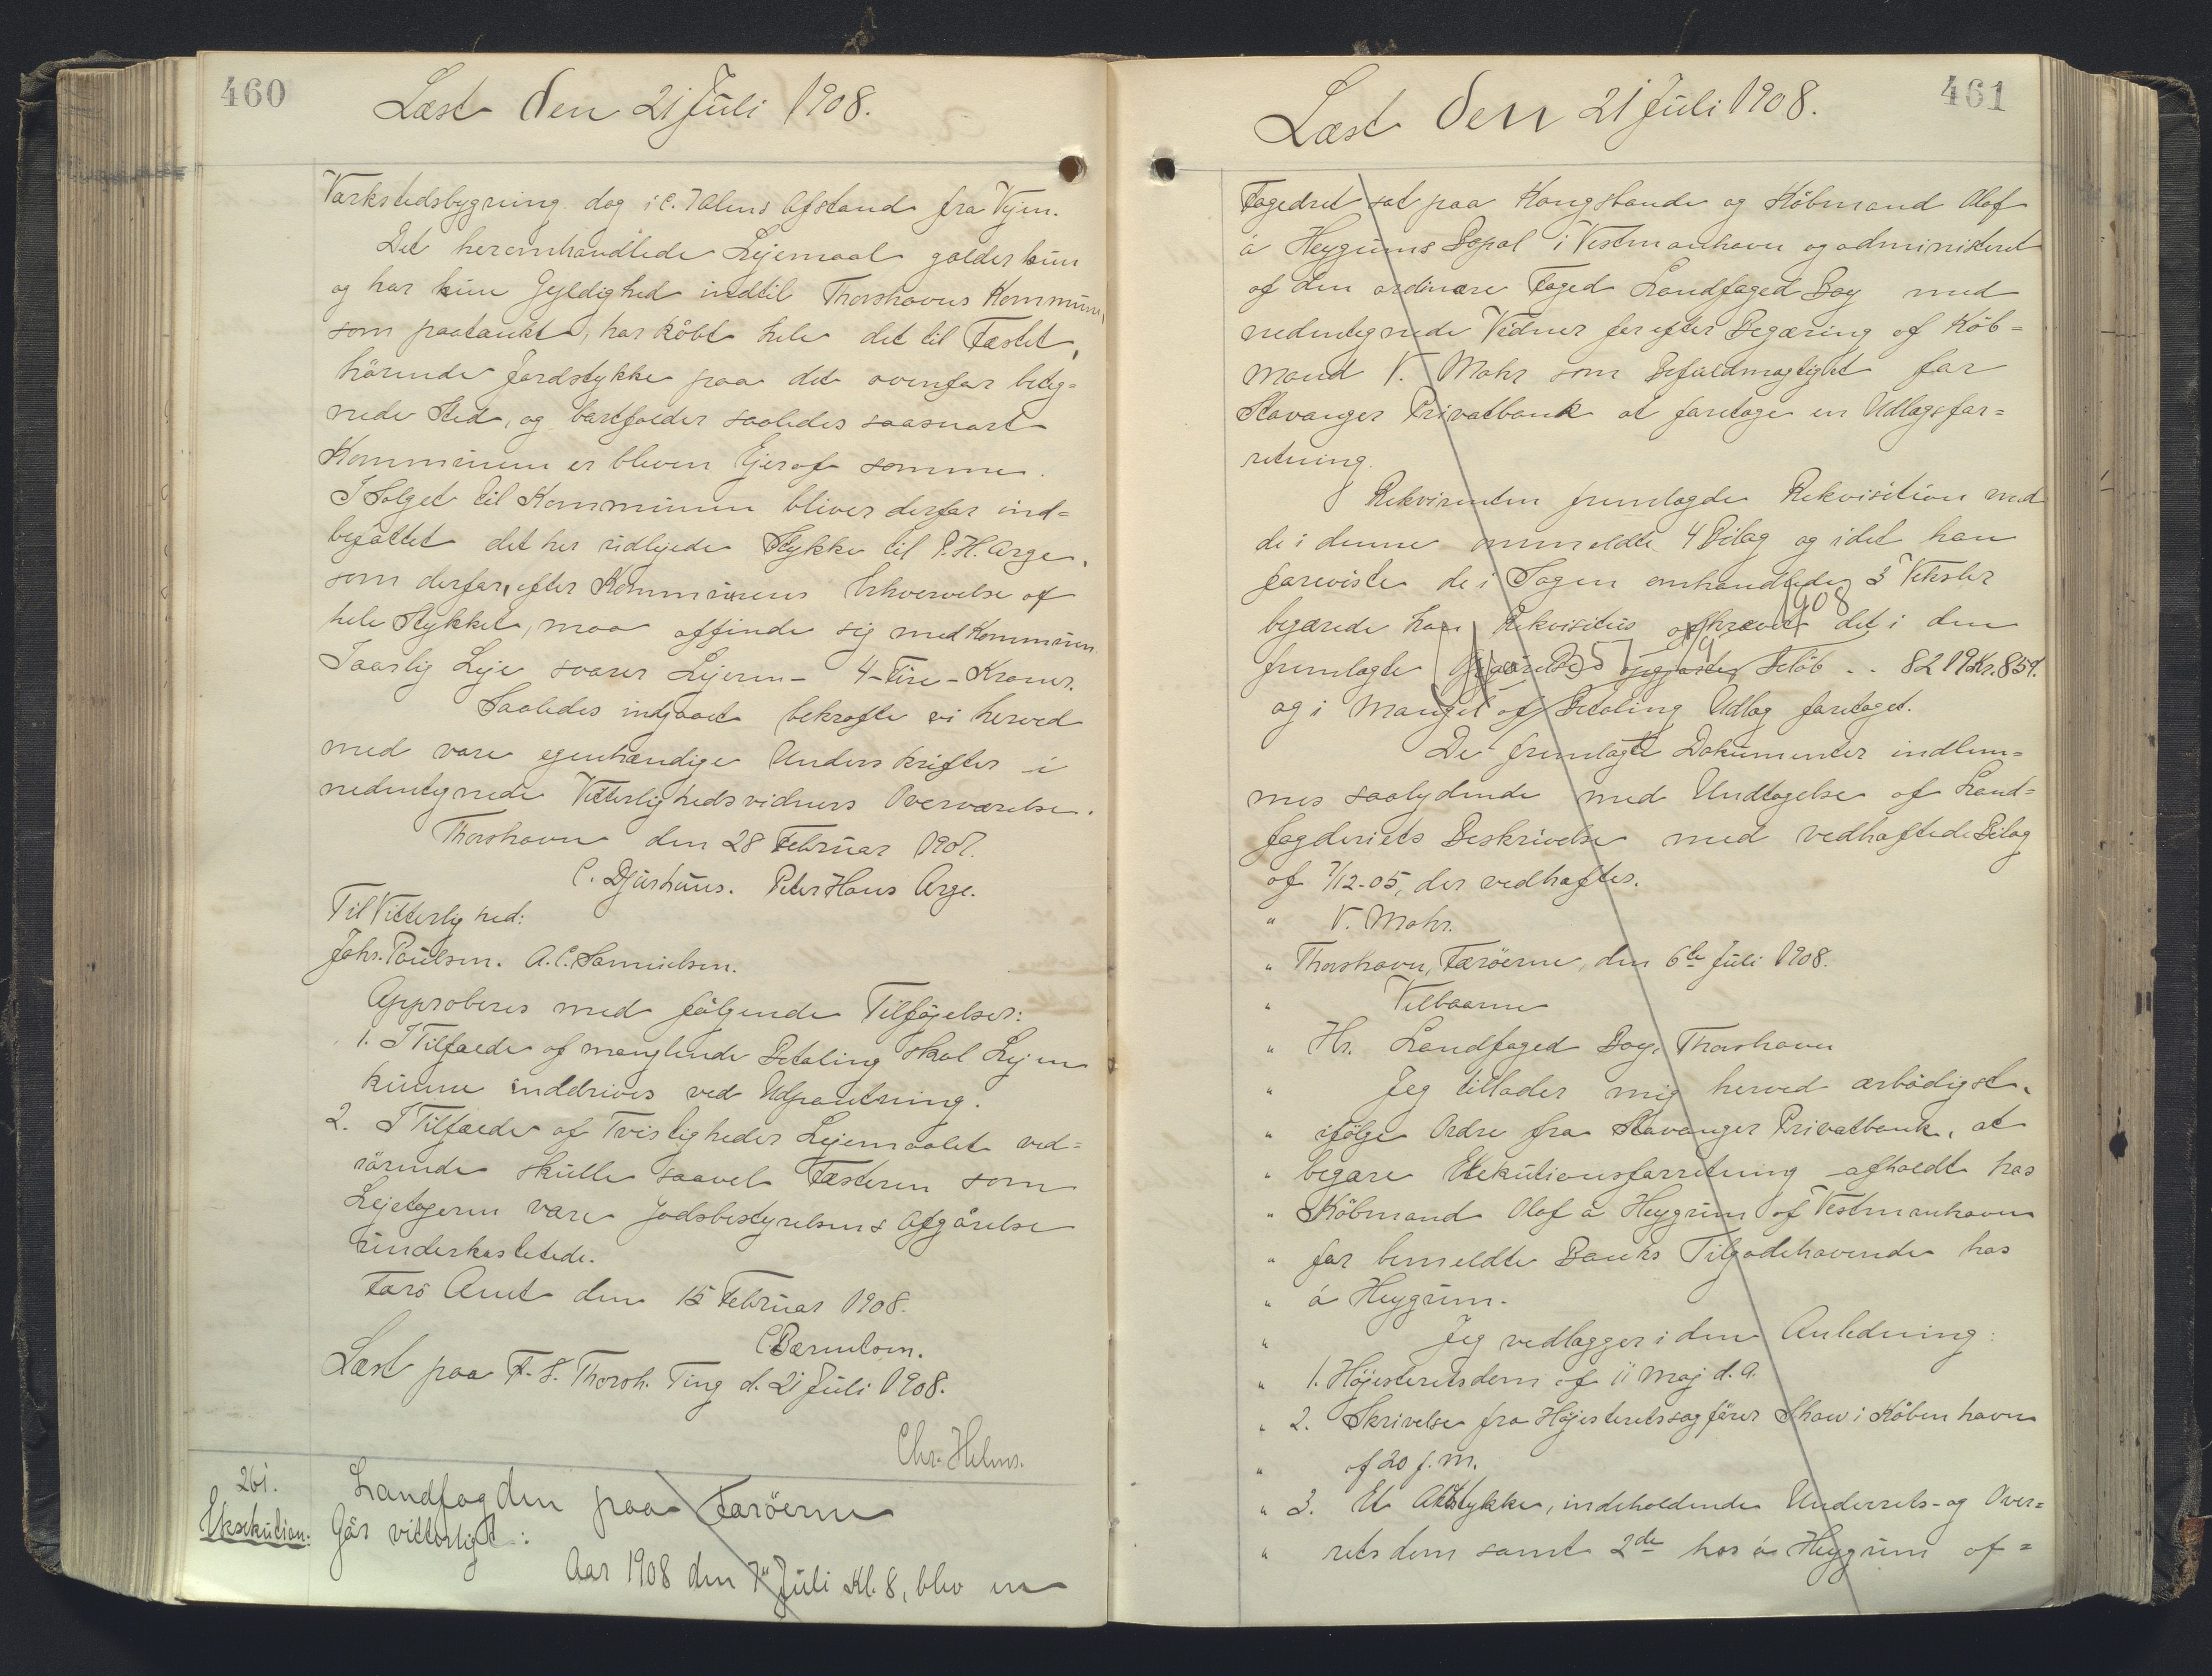 460
Læst den 21 Juli 1908.
Værkstedsbygning dog i c. 7 Alens Afstand fra Vejen.
Det heromhandlede Lejemaal gælder kun
og har kun Gyldighed indtil Thorshavns Kommune,
som paatænkt, har købt hele det til Fæstet
hørende Jordstykke paa det ovenfor beteg=
nede Sted, og bortfalder saaledes saasnart
Kommunen er bleven Ejer af samme.
I Salget til Kommunen bliver derfor ind=
befattet det her udlejede Stykke til P. H. Arge,
som derfor, efter Kommunens Erhvervelse af
hele Stykket, maa affinde sig med Kommunen.
I aarlig Leje svarer Lejeren - 4 - Fire - Kroner.
Saaledes indgaaet bekræfte vi herved
med vore egenhændige Underskrifter i
nedentegnede Vitterlighedsvidners Overværelse.
Thorshavn den 28 Februar 1907.
C. Djurhuus. Peter Hans Arge.
Til Vitterlighed:
Johs. Poulsen. A. C. Samuelsen.
Approberes med følgende Tilføjelser:
1. I Tilfælde af manglende Betaling skal Lejen
kunne inddrives ved Udpantning.
2. I Tilfælde af Tvistigheder Lejemaalet ved=
rørende skulle saavel Fæsteren som
Lejetageren være Jordsbestyrelsens Afgørelse
underkastede.
Færø Amt den 15 Februar 1908.
C Bærentsen.
Læst paa F. S. Thorsh. Ting d. 21 Juli 1908.
Chr. Helms.
261.
Eksekution.
Landfogden paa Færøerne
Gør vitterligt:
Aar 1908 den 7 Juli Kl. 8, blev en
461
Læst den 21 Juli 1908.
Fogedret sat paa Kongsbonde og Købmand Olof
á Heygums Bopæl i Vestmanhavn og administreret
af den ordinære Foged Landfoged Bay med
nedentegnede Vidner for efter Begæring af Køb=
mand V. Mohr som Befuldmægtiget for
Stavanger Privatbank at foretage en Udlægsfor=
retning.
Rekvirenten fremlagde Rekvisition med
de i denne ommeldte 4 Bilag og idet han
foreviste de i Sagen omhandlede 3 Veksler
begærede han Rekvisitus afkrævet det i den
1908
fremlagte opgjorte Beløb .. 8219 Kr. 85 Ø.
og i Mangel af Betaling Udlæg foretaget.
De fremlagte Dokumenter indlem=
mes saalydende med Undtagelse af Land=
fogderiets Beskrivelse med vedhæftede Bilag
af 7/12-05, der vedhæftes.
" V. Mohr.
" Thorshavn, Færøerne, den 6te Juli 1908.
" Velbaarne
" Hr. Landfoged Bay, Thorshavn
" Jeg tillader mig herved ærbødigst,
" ifølge Ordre fra Stavanger Privatbank, at
" begære Eksekutionsforretning afholdt hos
" Købmand Olof á Heygum af Vestmanhavn
" for bemeldte Banks Tilgodehavende hos
" á Heygum.
" Jeg vedlægger i den Anledning:
" 1. Højesteretsdom af 11 Maj d. A.
" 2. Skrivelse fra Højesteretssagfører Shaw i København
" af 20 f. M.
" 3. Et Aktstykke, indeholdende Underrets- og Over=
" retsdom samt 2de hos á Heygum af=